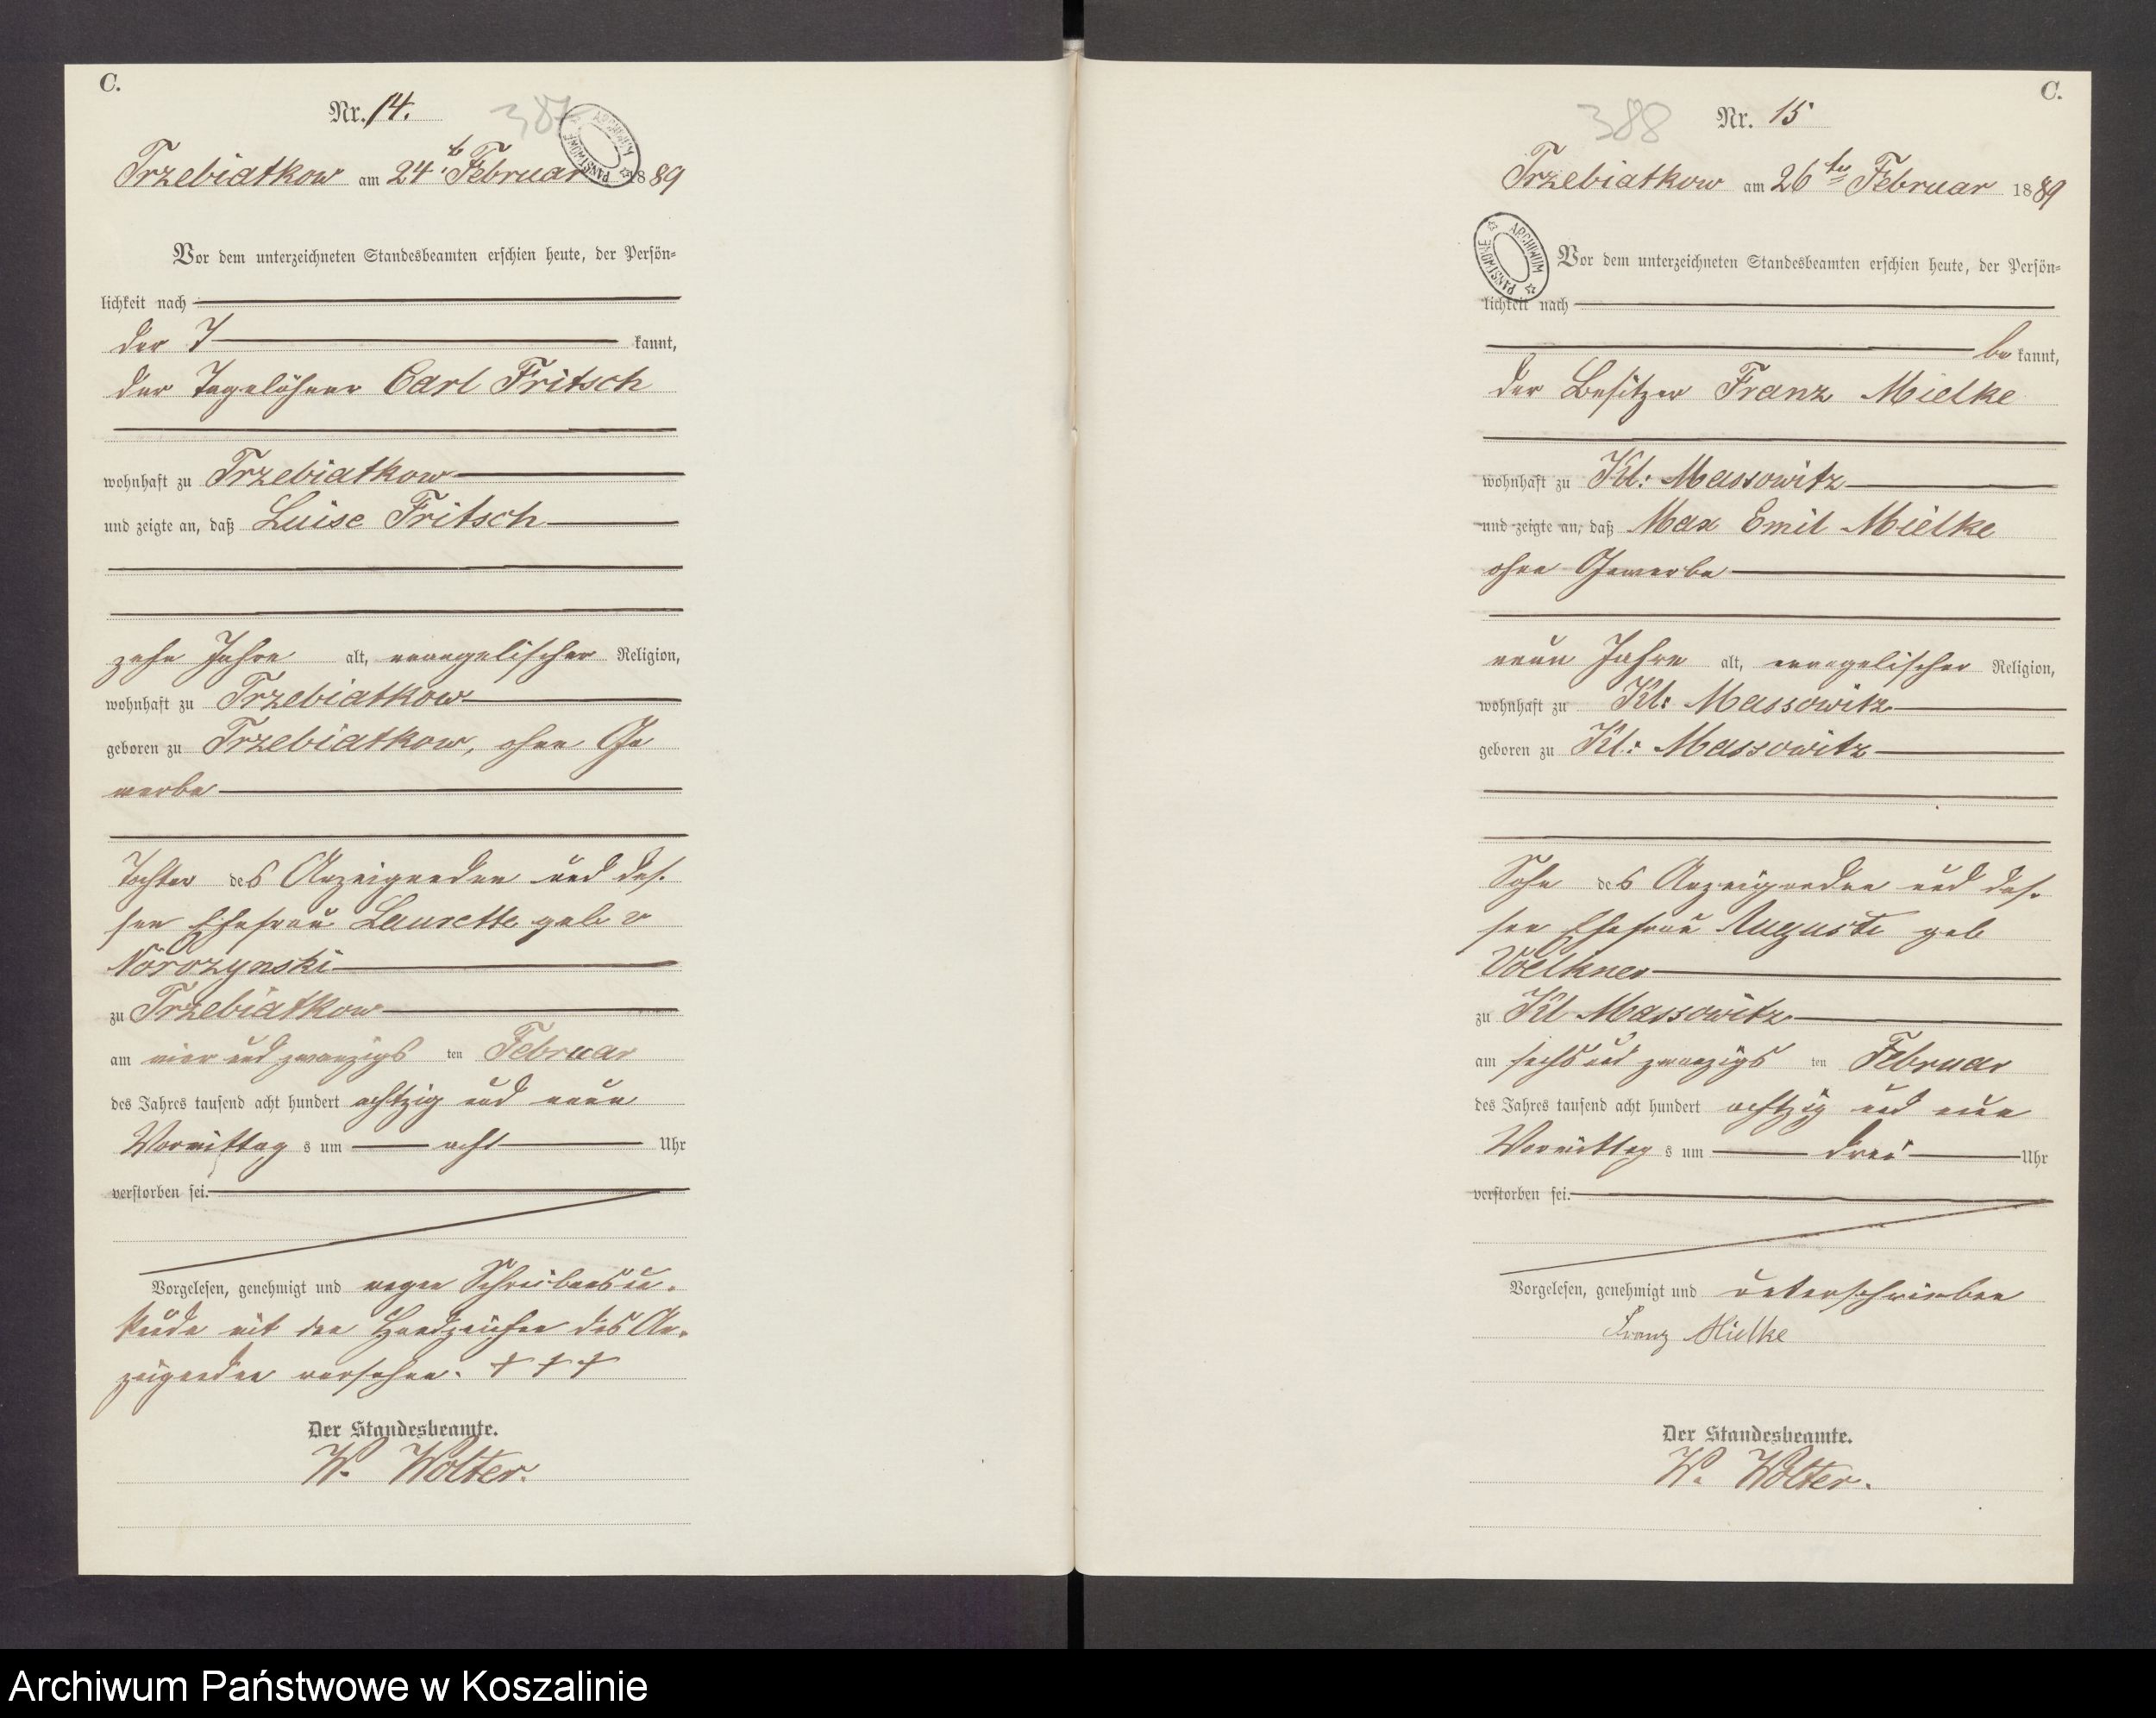 C.
Nr. 14.
387
Trzebiatkow am 24. Februar 1889
ARCHIWUM PAŃSTWOWE
Vor dem unterzeichneten Standesbeamten erschien heute, der Persön-
lichkeit nach
der kannt,
der Tagelöhner Carl Fritsch
wohnhaft zu Trzebiatkow
und zeigte an, daß Luise Fritsch
zehn Jahre alt, evangelischer Religion,
wohnhaft zu Trzebiatkow
geboren zu Trzebiatkow, ohne Ge
werbe
Tochter des Anzeigenden und des-
sen Ehefrau Laurette geb v
zu Trzebiatkow
am vier und zwanzigs ten Februar
des Jahres tausend acht hundert achtzig und neun
Vormittag s um acht Uhr
verstorben sei.
Vorgelesen, genehmigt und wegen Schreibensun-
kunde mit den Handzeichen des An-
zeigenden versehen. + + +
Der Standesbeamte.
W. Wolter.
C.
388
Nr. 15
Trzebiatkow am 26ten Februar 1889
ARCHIWUM PAŃSTWOWE
Vor dem unterzeichneten Standesbeamten erschien heute, der Persön-
lichkeit nach
be kannt,
der Besitzer Franz Mielke
wohnhaft zu Kl: Massowitz
und zeigte an, daß Max Emil Mielke
ohne Gewerbe
neun Jahre alt, evangelischer Religion,
wohnhaft zu Kl: Massowitz
geboren zu Kl: Massowitz
Sohn des Anzeigenden und des-
sen Ehefrau Auguste geb
Voelkner
zu Kl Massowitz
am sechs und zwanzigs ten Februar
des Jahres tausend acht hundert achtzig und neun
Vormittag s um drei Uhr
verstorben sei.
Vorgelesen, genehmigt und unterschrieben
Franz Mielke
Der Standesbeamte.
W. Wolter.
Archiwum Państwowe w Koszalinie